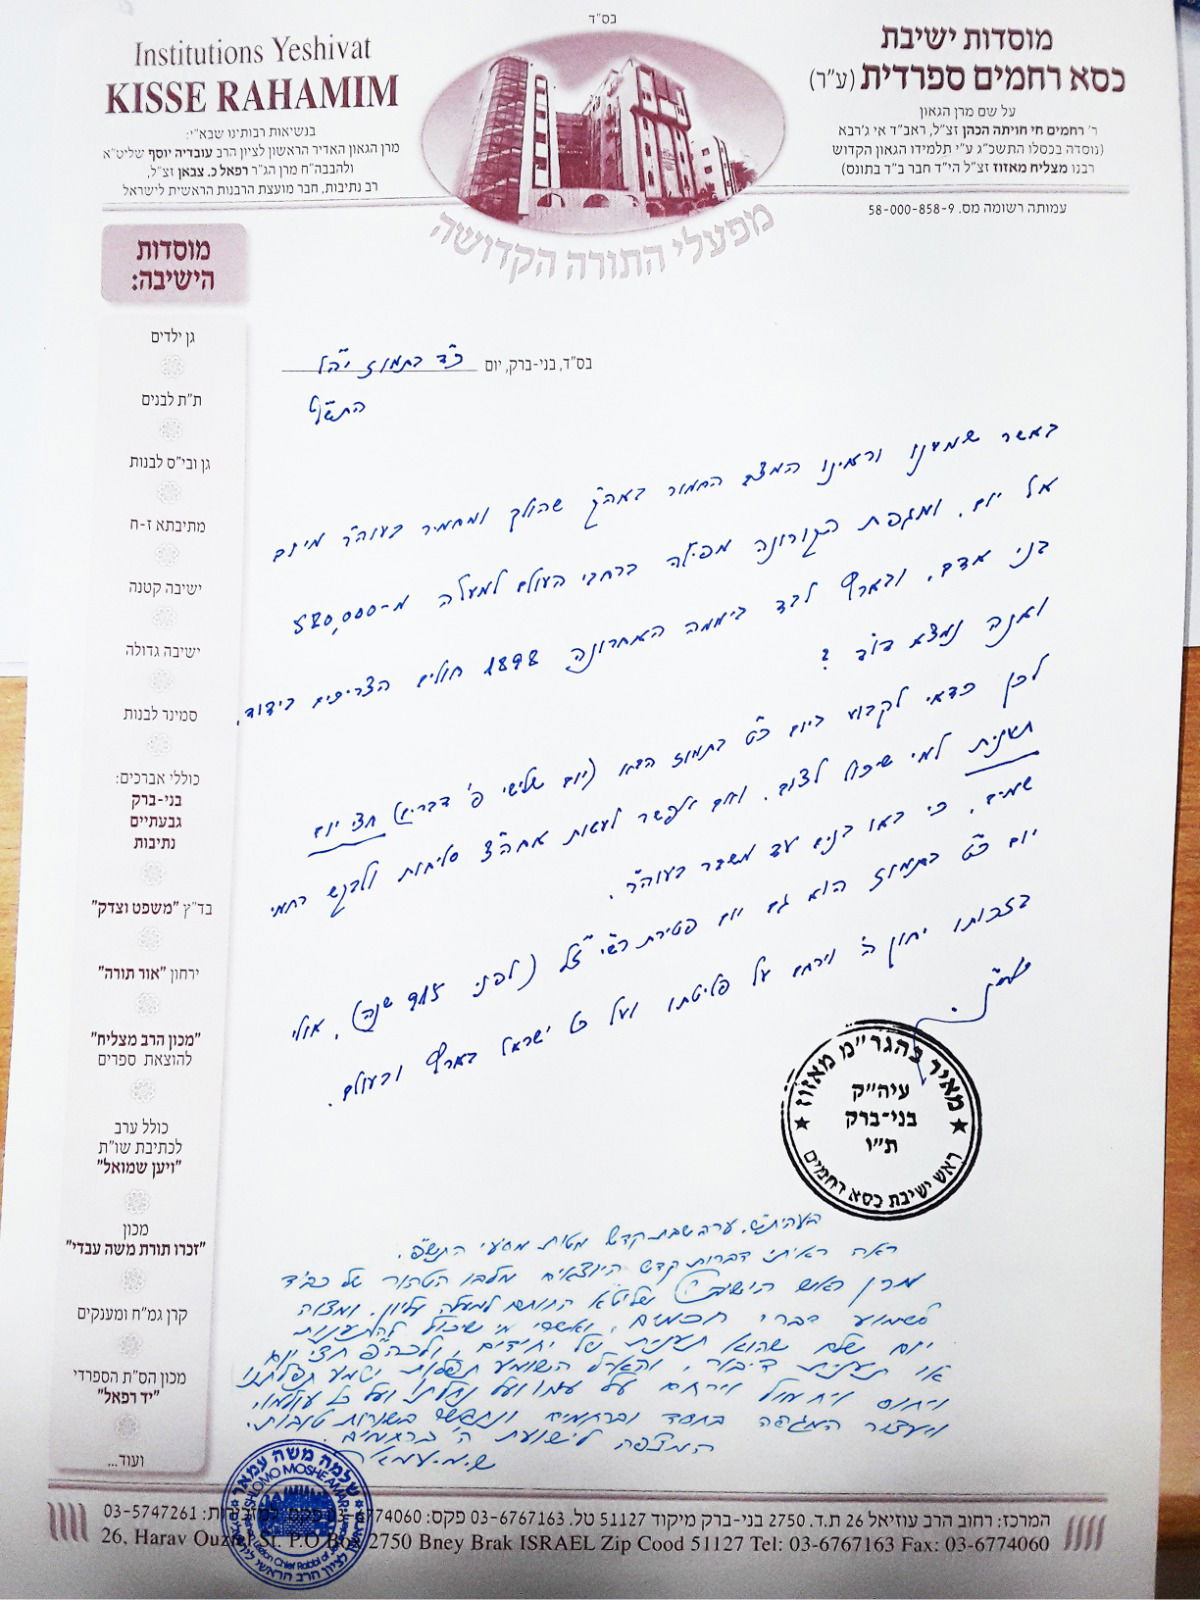 בס"ד
Institutions Yeshivat
KISSE RAHAMIM
בנשיאות רבותינו שבא"י:
מרן הגאון האדיר הראשון לציון הרב עובדיה יוסף שליט"א
ולהבבה"ח מרן הג"ר רפאל כ. צבאן זצ"ל,
רב נתיבות, חבר מועצת הרבנות הראשית לישראל
מוסדות ישיבת
כסא רחמים ספרדית (ע"ר)
על שם מרן הגאון
ר' רחמים חי חויתה הכהן זצ"ל, ראב"ד אי ג'רבא
(נוסדה בכסלו התשכ"ג ע"י תלמידו הגאון הקדוש
רבנו מצליח מאזוז זצ"ל הי"ד חבר ב"ד בתונס)
עמותה רשומה מס. 58-000-858-9
מפעלי התורה הקדושה
מוסדות
הישיבה:
גן ילדים
ת"ת לבנים
גן ובי"ס לבנות
מתיבתא ז-ח
ישיבה קטנה
ישיבה גדולה
סמינר לבנות
כוללי אברכים:
בני-ברק
גבעתיים
נתיבות
בד"ץ "משפט וצדק"
ירחון "אור תורה"
"מכון הרב מצליח"
להוצאת ספרים
כולל ערב
לכתיבת שו"ת
"ויען שמואל"
מכון
"זכרו תורת משה עבדי"
קרן גמ"ח ומענקים
מכון הס"ת הספרדי
"יד רפאל"
ועוד...
בס"ד, בני-ברק, יום כ"ד בתמוז
באשר שמענו וראינו המצב החמור באה"ק שהולך ומחמיר בעוה"ר מיום
אל יום, ומגפת הקורונה מפילה ברחבי העולם למעלה מ-580,000
בני אדם, ובארץ לבד ביממה האחרונה 1898 חולים הצריכים בידוד,
ואנה נמצא
לכן כדאי לקבוע ביום כ"ט בתמוז הבא (יום שלישי פ' דברים) חצי יום
תענית למי שיכול לצום, ואם אפשר לעשות אחה"צ סליחות ולבקש רחמי
שמים, כי באו בנים עד משבר בעוה"ר.
יום כ"ט בתמוז הוא גם יום פטירת רש"י ז"ל (לפני 915 שנה), אולי
בזכותו יחון ה' וירחם על פליטתו ועל כל ישראל בארץ ובעולם.
מאיר בהגר"מ מאזוז
עיה"ק
בני-ברק
ת"ו
ראש ישיבת כסא רחמים
ערב שבת קדש מטות מסעי התש"פ.
ראה ראיתי דברות קדש היוצאים מלבו הטהור של
מרן ראש הישיבה שליט"א החותם למעלה עליון. ומצוה
לשמוע דברי חכמים, ואשרי מי שיכול להתענות
יום שלם שהוא תענית של יחידים, ולכה"פ חצי יום
או תענית דיבור, השומע תפלות ישמע תפלתנו
ויחוס ויחמול וירחם על עמו ועל נחלתו ועל כל עולמו,
ויעצור המגפה בחסד וברחמים ונתבשר בשורות טובות.
המצפה לישועת ה' ברחמים.
שלמה משה עמאר
SHLOMO MOSHE AMAR
המרכז: רחוב הרב עוזיאל 26 ת.ד. 2750 בני-ברק מיקוד 51127 טל. 03-6767163 פקס: 03-6774060 03-5747261
26, Harav Ouziel St. P.O Box 2750 Bney Brak ISRAEL Zip Cood 51127 Tel: 03-6767163 Fax: 03-6774060